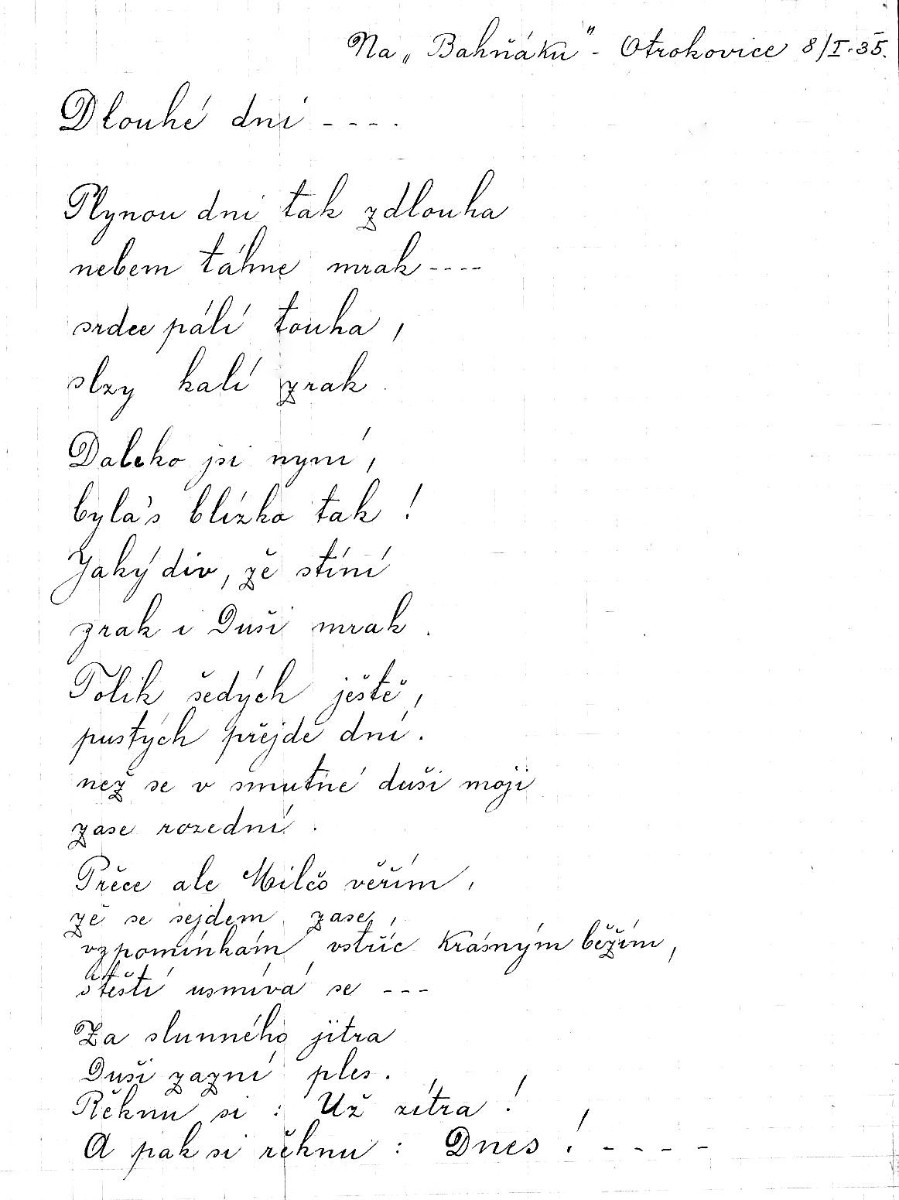 Na „Bahňáku" - Otrokovice 8/I.35.
Dlouhé dní ----
Plynou dni tak zdlouha
nebem táhne mrak ----
srdce pálí touha,
slzy kalí zrak.
Daleko jsi nyní,
byla's blízko tak!
Jaký div, zě stíní
zrak i Duši mrak.
Tolik šedých ještě,
pustých přejde dní.
než se v smutné duši moji
zase rozední.
Přece ale Milčo věřím,
zě se sejdem zase,
vzpomínkám vstříc krásným běžím,
štěstí usmívá se ---
Za slunného jitra
Duši zazní ples.
Rěknu si: Už zítra!
A pak si rěknu: Dnes! ----